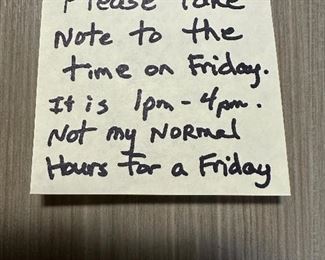 Please Take
Note to the
time on Friday.
It is 1pm - 4pm.
Not my Normal
Hours for a Friday